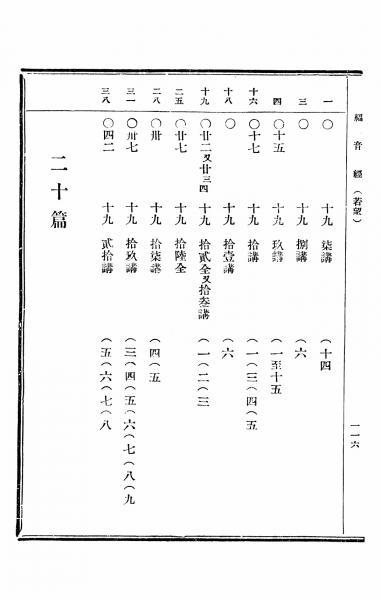 福音經（若望）
一一六
一 〇 十九 柒講 （十四
三 〇 十九 捌講 （六
四 〇十五 十九 玖講 （一至十五
十六 〇十七 十九 拾講 （一（三（四（五
十八 〇 十九 拾壹講 （六
十九 〇廿二又廿三四 十九 拾貳仝又拾叁講 （一（二（三
二五 〇廿七 十九 拾陸仝
二八 〇卅 十九 拾柒講 （四（五
三一 〇卅七 十九 拾玖講 （三（四（五（六（七（八（九
三八 〇四二 十九 貳拾講 （五（六（七（八
二十篇